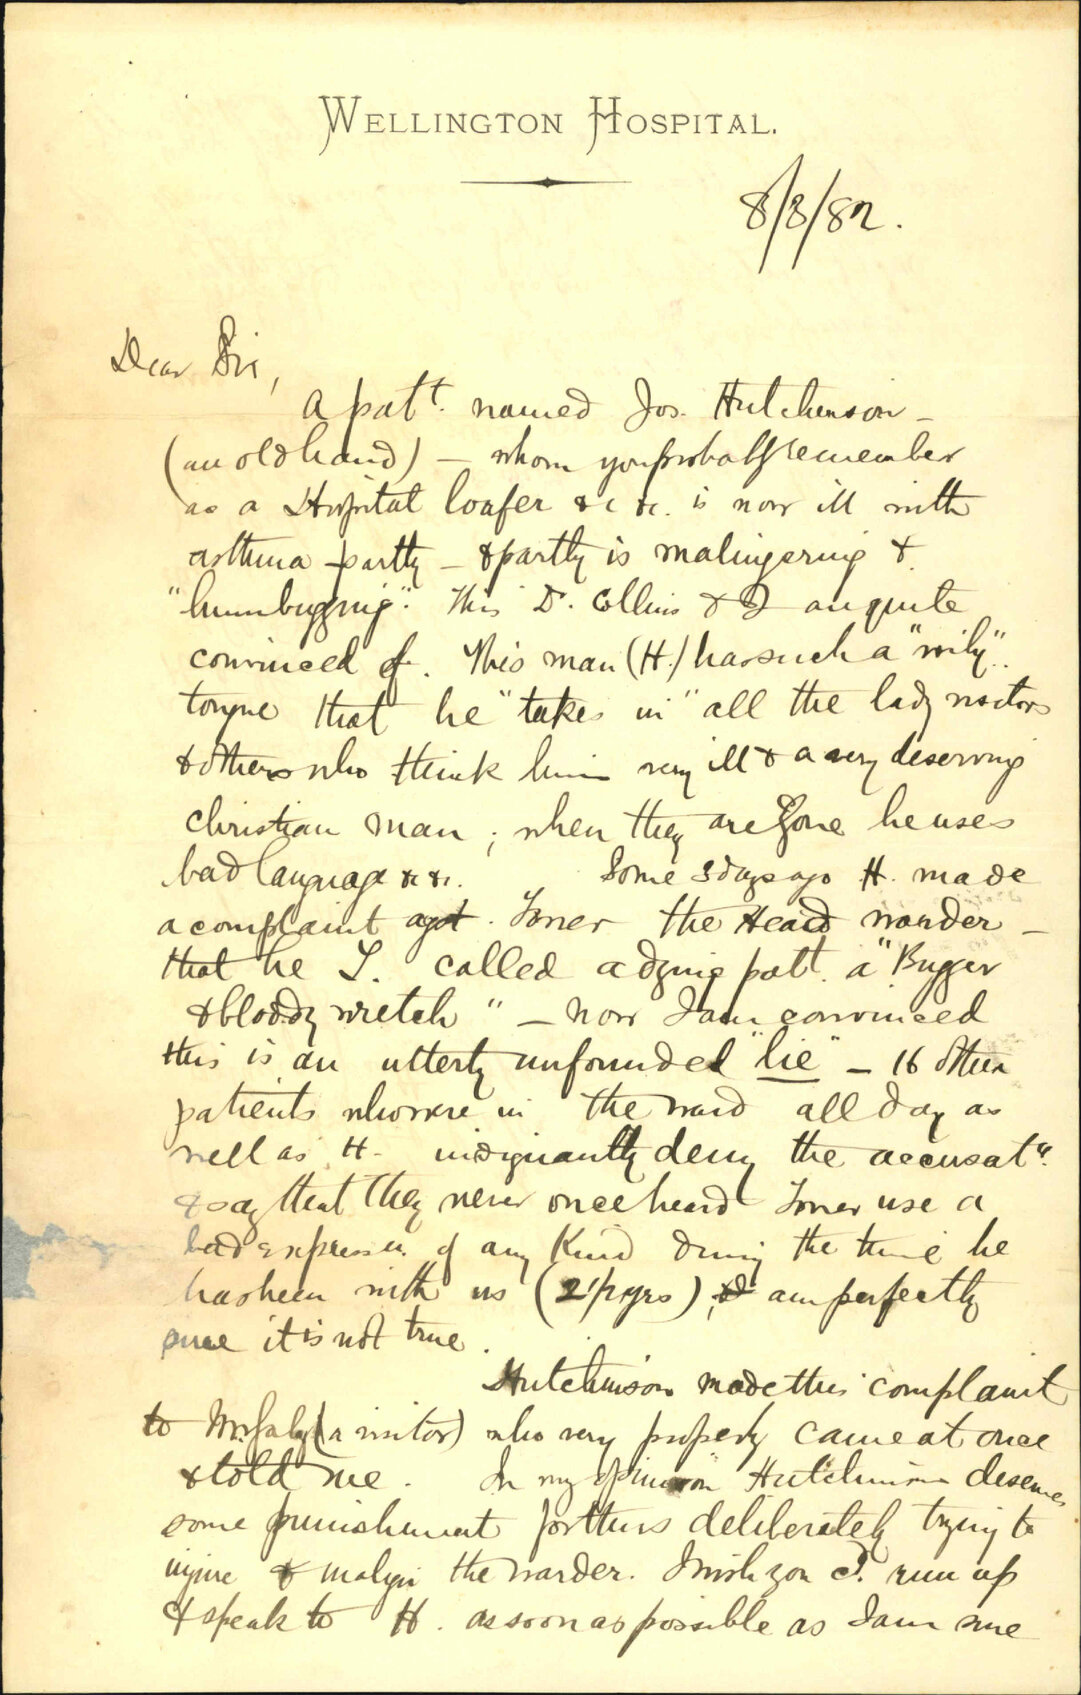 WELLINGTON HOSPITAL.
8/8/82.
Dear Sir,
A patt. named Jos. Hutchinson –
(an old hand) – whom you probably remember
as a Hospital loafer &c &c. is now ill with
asthma – partly – & partly is malingering &
"humbugging". This Dr. Collins & I am quite
convinced of. This man (H.) has such a "wily"
tongue that he "takes in" all the lady visitors
& others who think him very ill & a very deserving
christian man; when they are gone he uses
bad language &c &c. Some 3 days ago H. made
a complaint agst. Toner the Head warder –
that he T. called a dying patt. a "Bugger
& bloody wretch" – now I am convinced
this is an utterly unfounded "lie" – 16 other
patients who were in the ward all day as
well as H. indignantly deny the accusatn.
& say that they never once heard Toner use a
bad expression of any kind during the time he
has been with us (2½ yrs), & I am perfectly
sure it is not true.
Hutchinson made this complaint
to (a visitor) who very properly came at once
& told me. In my opinion Hutchinson deserves
some punishment for thus deliberately trying to
injure & malign the warder. I wish you cd. run up
& speak to H. as soon as possible as I am sure